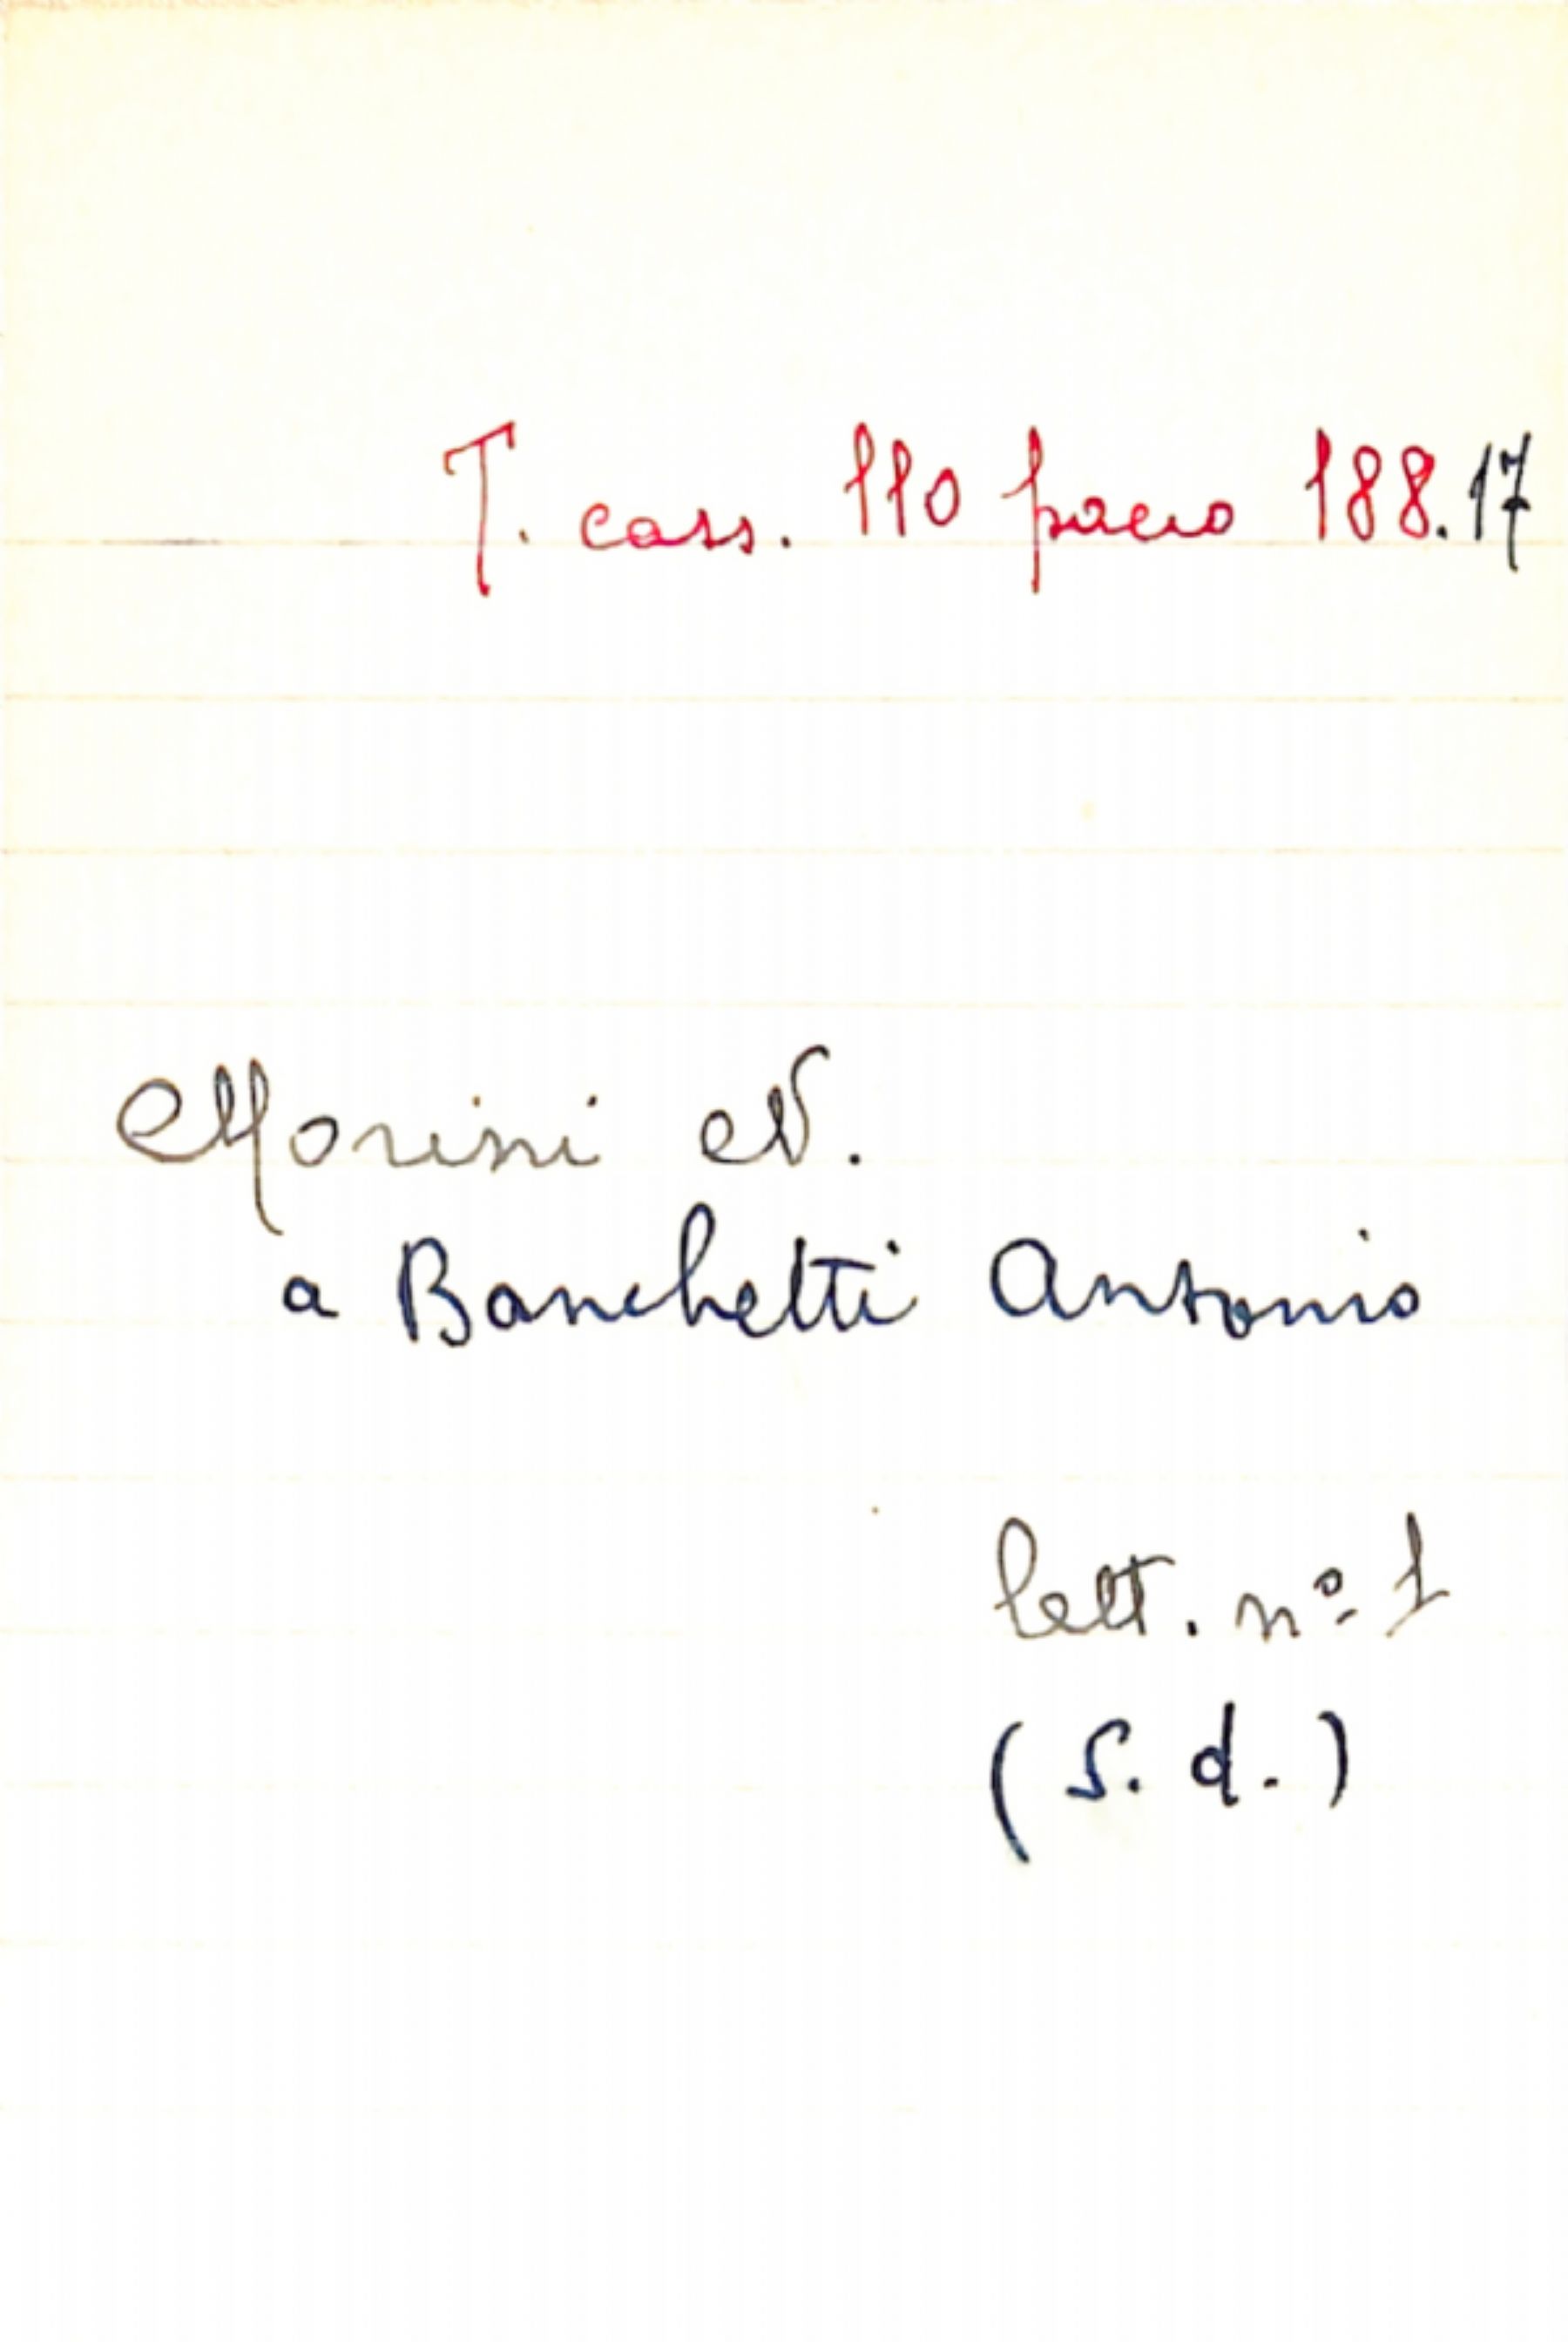 T. cass. 110 fascio 188.17
Morini N.
a Banchetti Antonio
lett. nº 1
(S. d.)